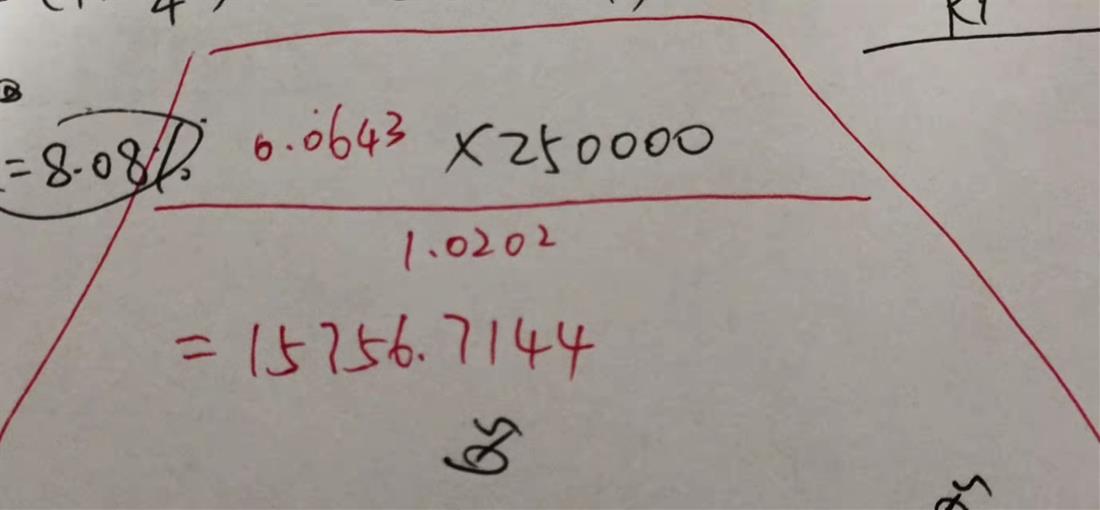 4
R1
= 8.08%
0.0643 × 250000
1.0202
= 15756.7144